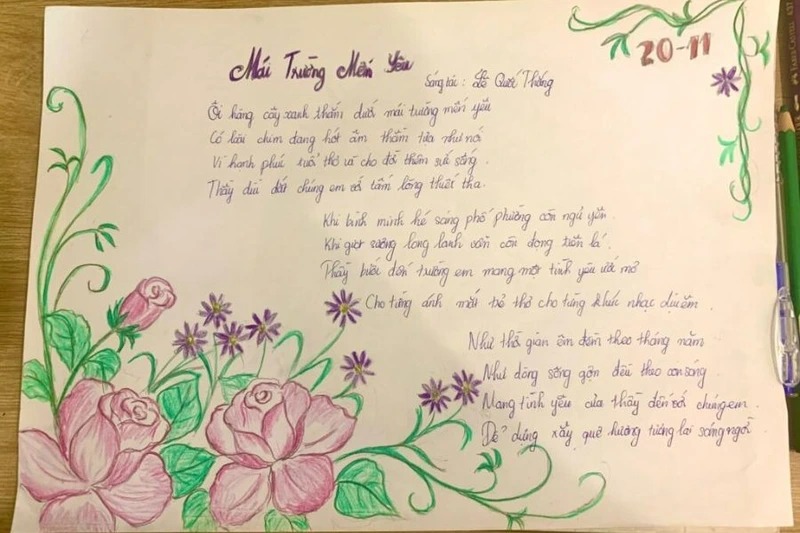 20-11
Mái Trường Mến Yêu
Sáng tác : Lê Quốc Thắng
Ôi hàng cây xanh thắm dưới mái trường mến yêu
Có loài chim đang hót âm thầm tựa như nói
Vì hạnh phúc tuổi thơ và cho đời thêm sức sống.
Thầy dìu dắt chúng em với tấm lòng thiết tha.
Khi bình minh hé sáng phố phường còn ngủ yên.
Khi giọt sương long lanh vẫn còn đọng trên lá.
Thầy bước đến trường em mang một tình yêu ước mơ
Cho từng ánh mắt trẻ thơ cho từng khúc nhạc dịu êm.
Như thời gian êm đềm theo tháng năm
Như dòng sông gợn đều theo con sóng.
Mang tình yêu của thầy đến với chúng em.
Để dựng xây quê hương tương lai sáng ngời.